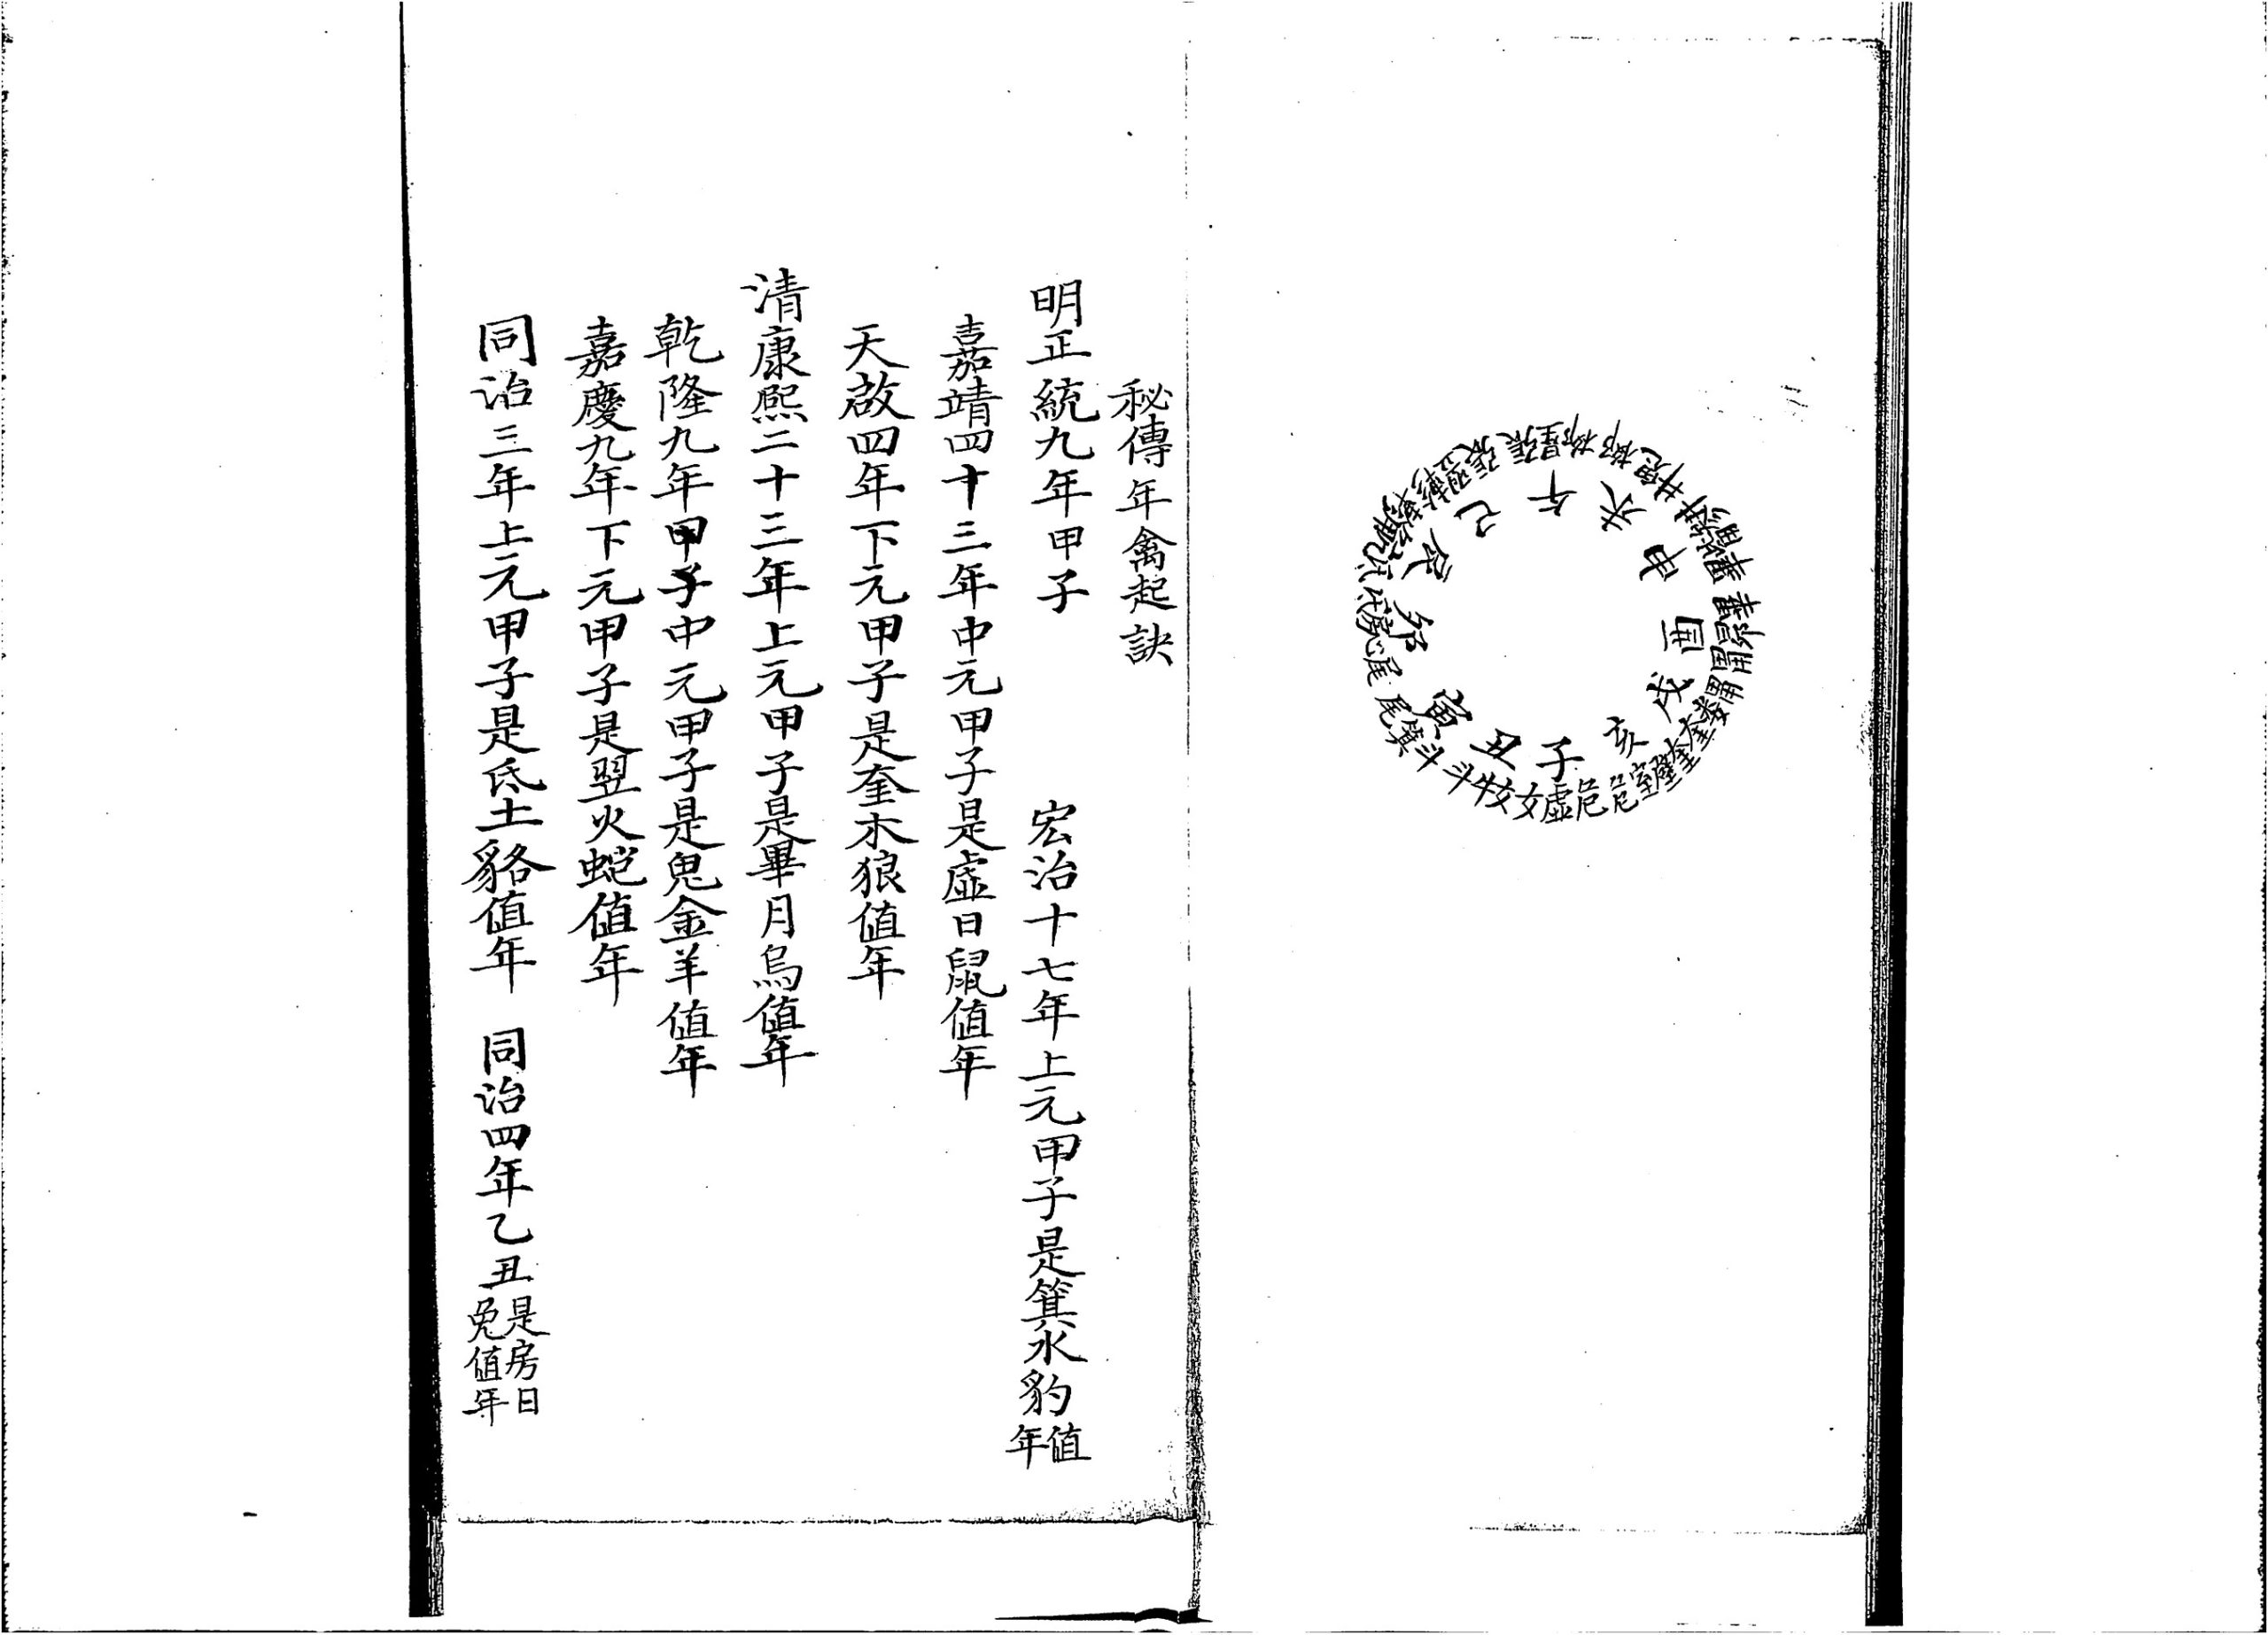 子丑寅卯辰巳午未申酉戌亥
秘傳年禽起訣
明正統九年甲子 宏治十七年上元甲子是箕水豹值年
嘉靖四十三年中元甲子是虛日鼠值年
天啟四年下元甲子是奎木狼值年
清康熙二十三年上元甲子是畢月烏值年
乾隆九年甲子中元甲子是鬼金羊值年
嘉慶九年下元甲子是翌火蛇值年
同治三年上元甲子是氐土貉值年 同治四年乙丑是房日兔值年